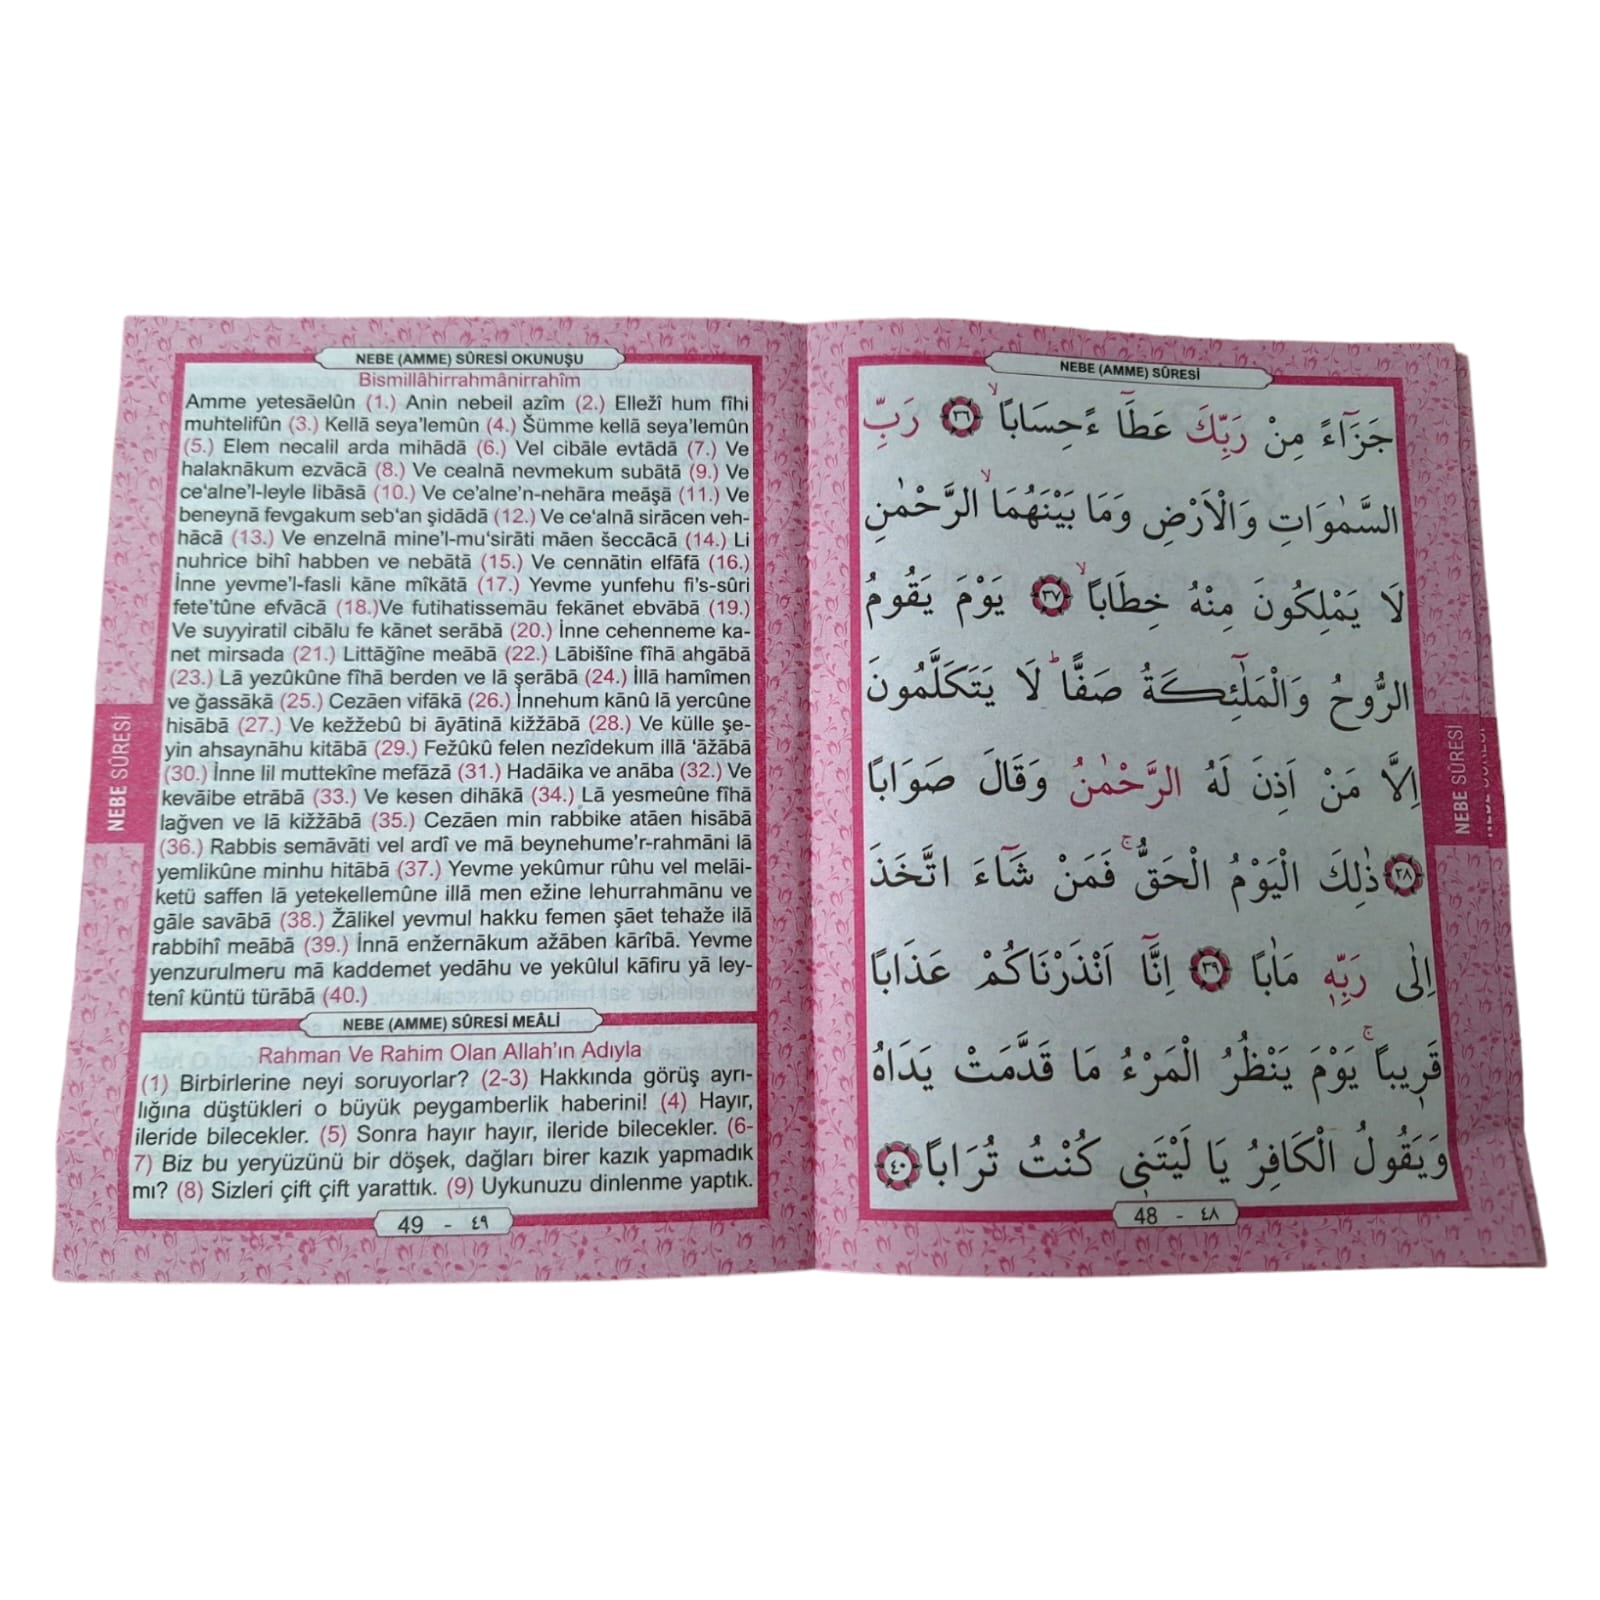 NEBE (AMME) SÛRESİ
جَزَٓاءً مِنْ رَبِّكَ عَطَٓا ءًحِسَابًاۙ ﴿٣٦﴾ رَبِّ
السَّمٰوَاتِ وَالْاَرْضِ وَمَا بَيْنَهُمَاۙ الرَّحْمٰنِ
لَا يَمْلِكُونَ مِنْهُ خِطَابًاۙ ﴿٣٧﴾ يَوْمَ يَقُومُ
الرُّوحُ وَالْمَلٰٓئِكَةُ صَفًّاۜ لَا يَتَكَلَّمُونَ
اِلَّا مَنْ اَذِنَ لَهُ الرَّحْمٰنُ وَقَالَ صَوَابًا
﴿٣٨﴾ ذٰلِكَ الْيَوْمُ الْحَقُّۚ فَمَنْ شَٓاءَ اتَّخَذَ
اِلٰى رَبِّهٖ مَاٰبًا ﴿٣٩﴾ اِنَّٓا اَنْذَرْنَاكُمْ عَذَابًا
قَرٖيبًاۚ يَوْمَ يَنْظُرُ الْمَرْءُ مَا قَدَّمَتْ يَدَاهُ
وَيَقُولُ الْكَافِرُ يَا لَيْتَنٖى كُنْتُ تُرَابًا ﴿٤٠﴾
48 - ٤٨
NEBE SÛRESİ
NEBE SÛRESİ
NEBE (AMME) SÛRESİ OKUNUŞU
Bismillâhirrahmânirrahîm
Amme yetesāelûn (1.) Anin nebeil azîm (2.) Elležî hum fîhi
muhtelifûn (3.) Kellā seya'lemûn (4.) Šümme kellā seya'lemûn
(5.) Elem necalil arda mihādā (6.) Vel cibāle evtādā (7.) Ve
halaknākum ezvācā (8.) Ve cealnā nevmekum subātā (9.) Ve
ce'alne'l-leyle libāsā (10.) Ve ce'alne'n-nehāra meāşā (11.) Ve
beneynā fevgakum seb'an şidādā (12.) Ve ce'alnā sirācen veh-
hācā (13.) Ve enzelnā mine'l-mu'sirāti māen šeccācā (14.) Li
nuhrice bihî habben ve nebātā (15.) Ve cennātin elfāfā (16.)
İnne yevme'l-fasli kāne mîkātā (17.) Yevme yunfehu fi's-sûri
fete'tûne efvācā (18.)Ve futihatissemāu fekānet ebvābā (19.)
Ve suyyiratil cibālu fe kānet serābā (20.) İnne cehenneme ka-
net mirsada (21.) Littāğîne meābā (22.) Lābišîne fîhā ahgābā
(23.) Lā yezûkûne fîhā berden ve lā şerābā (24.) İllā hamîmen
ve ğassākā (25.) Cezāen vifākā (26.) İnnehum kānû lā yercûne
hisābā (27.) Ve kežžebû bi āyātinā kižžābā (28.) Ve külle şe-
yin ahsaynāhu kitābā (29.) Fežûkû felen nezîdekum illā 'āžābā
(30.) İnne lil muttekîne mefāzā (31.) Hadāika ve anāba (32.) Ve
kevāibe etrābā (33.) Ve kesen dihākā (34.) Lā yesmeûne fîhā
lağven ve lā kižžābā (35.) Cezāen min rabbike atāen hisābā
(36.) Rabbis semāvāti vel ardî ve mā beynehume'r-rahmāni lā
yemlikûne minhu hitābā (37.) Yevme yekûmur rûhu vel melāi-
ketü saffen lā yetekellemûne illā men ežine lehurrahmānu ve
gāle savābā (38.) Žālikel yevmul hakku femen şāet tehaže ilā
rabbihî meābā (39.) İnnā enžernākum ažāben kārîbā. Yevme
yenzurulmeru mā kaddemet yedāhu ve yekûlul kāfiru yā ley-
tenî küntü türābā (40.)
NEBE (AMME) SÛRESİ MEÂLİ
Rahman Ve Rahim Olan Allah'ın Adıyla
(1) Birbirlerine neyi soruyorlar? (2-3) Hakkında görüş ayrı-
lığına düştükleri o büyük peygamberlik haberini! (4) Hayır,
ileride bilecekler. (5) Sonra hayır hayır, ileride bilecekler. (6-
7) Biz bu yeryüzünü bir döşek, dağları birer kazık yapmadık
mı? (8) Sizleri çift çift yarattık. (9) Uykunuzu dinlenme yaptık.
49 - ٤٩
NEBE SÛRESİ